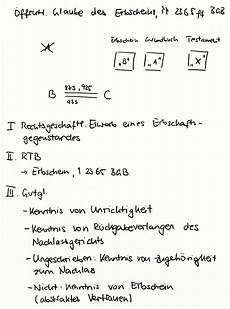 Öffentl. Glaube des Erbscheins, §§ 2365 ff BGB
Erbschein Grundbuch Testament
"B" "A" "X"
B 873, 925 C
I Rechtsgeschäftl. Erwerb eines Erbschafts-
gegenstandes
II. RTB
→ Erbschein, § 2365 BGB
III. Gutgl.
- Kenntnis von Unrichtigkeit
- Kenntnis von Rückgabeverlangen des
Nachlassgerichts
- Ungeschrieben: Kenntnis von Zugehörigkeit
zum Nachlass
- Nicht: Kenntnis von Erbschein
(abstraktes Vertrauen)